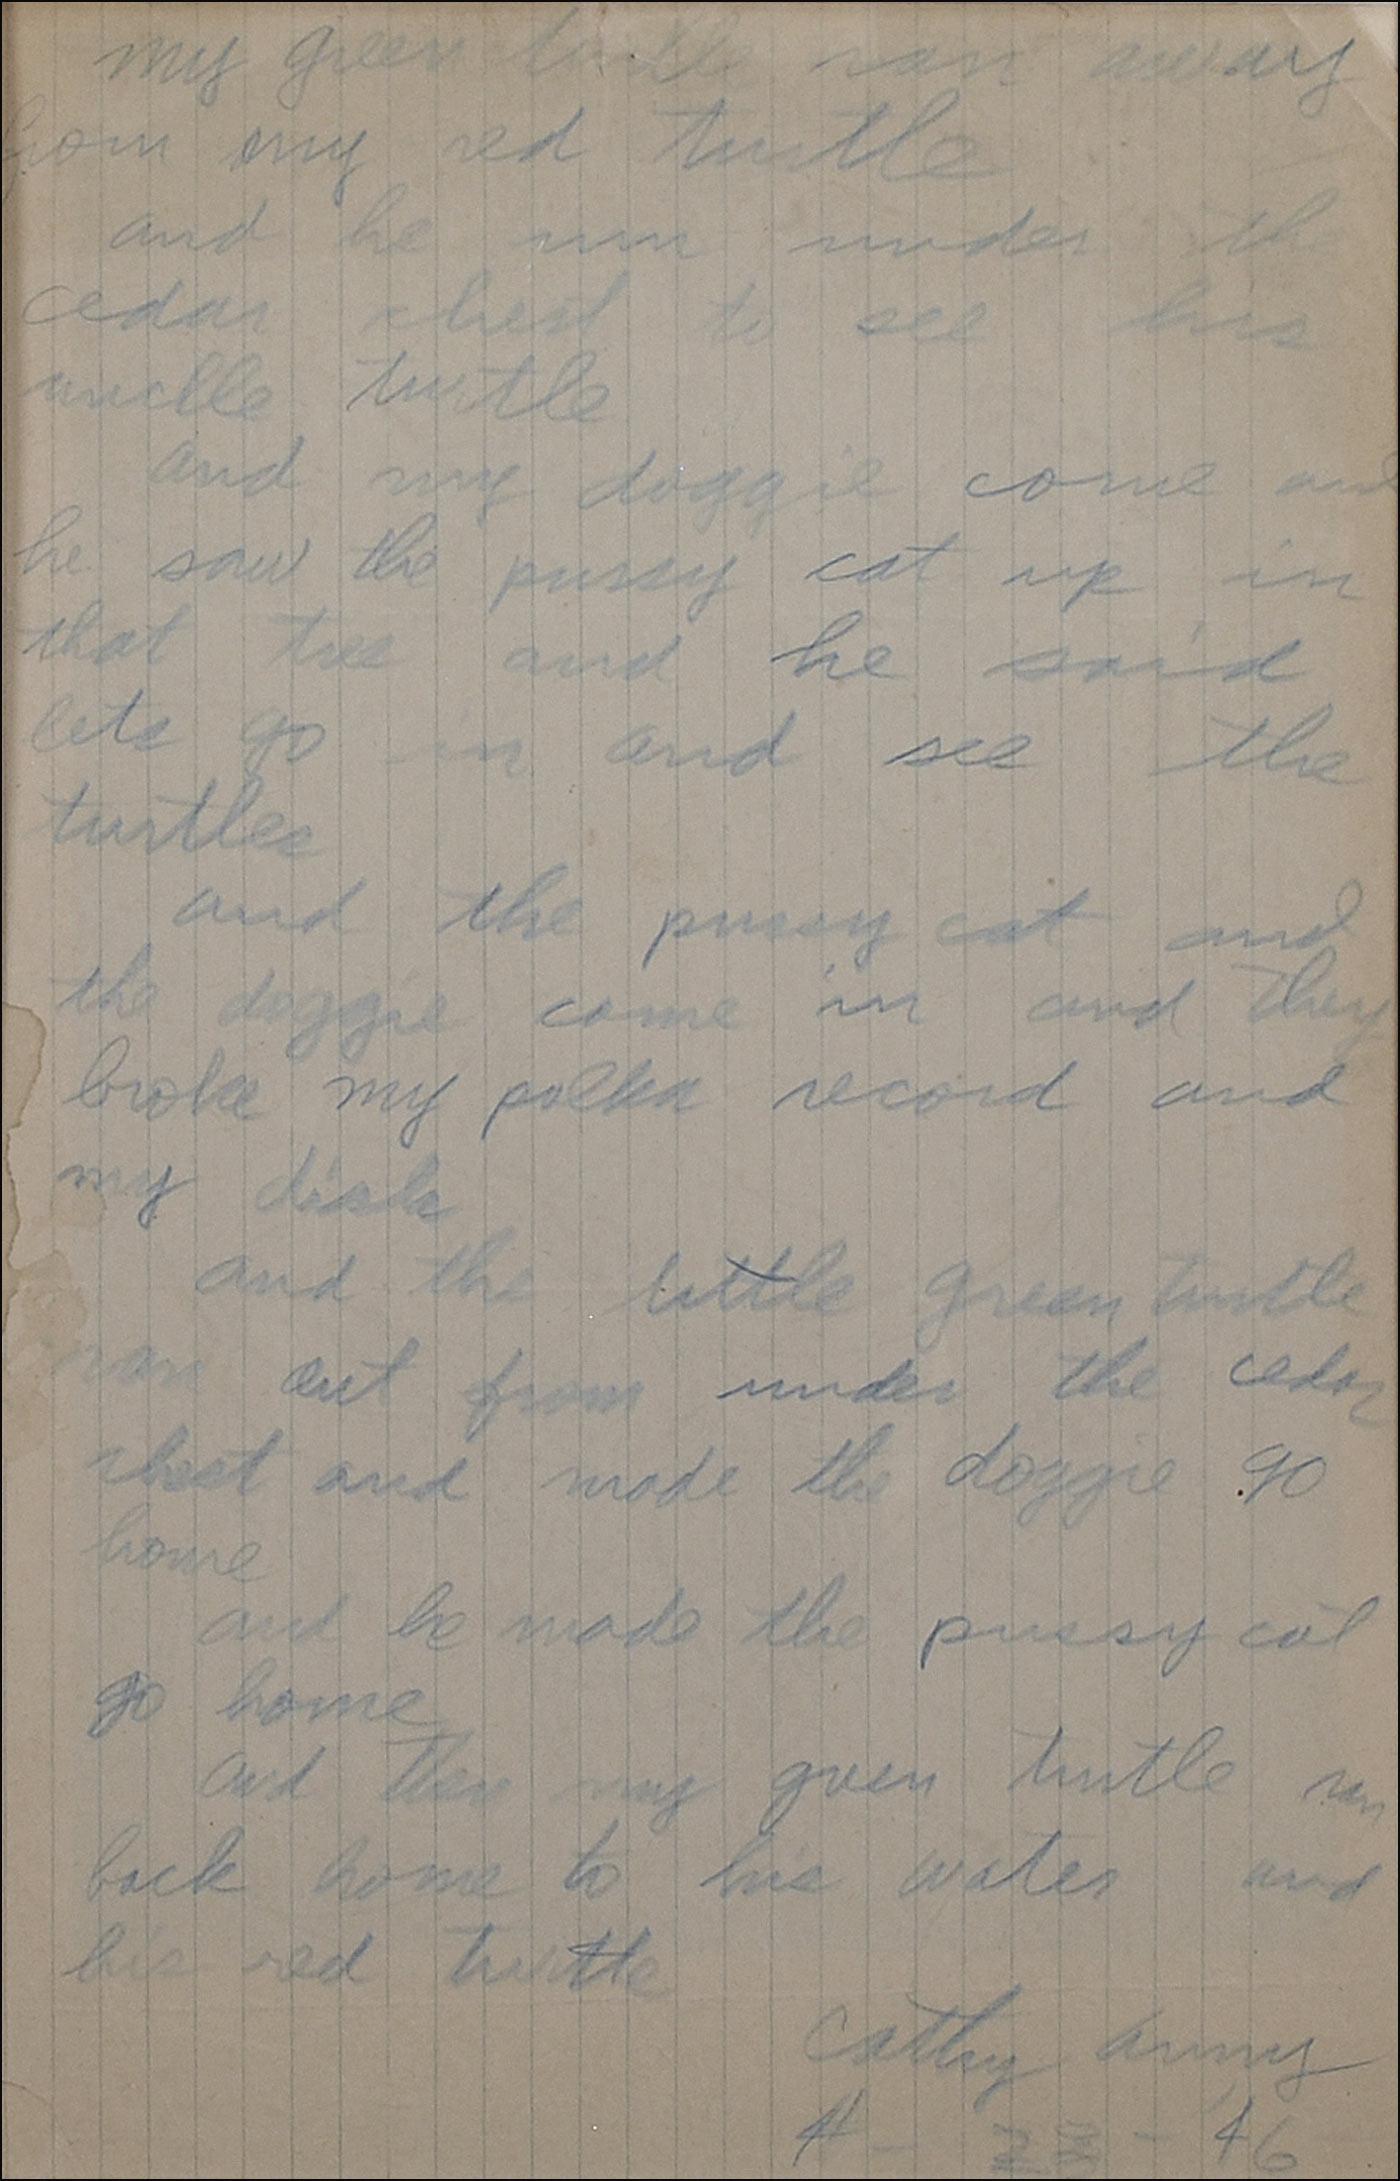 my green turtle ran away
from my red turtle
and he run under the
cedar chest to see his
unclle turtle
and my doggie come and
he saw the pussy cat up in
that tree and he said
lets go in and see the
turtles
and the pussy cat and
the doggie come in and they
broke my polka record and
my disk
and the little green turtle
ran out from under the cedar
chest and made the doggie go
home
and he made the pussy cat
go home
and then my green turtle ran
back home to his water and
his red turtle
Cathy Anny
4 - 23 - 46